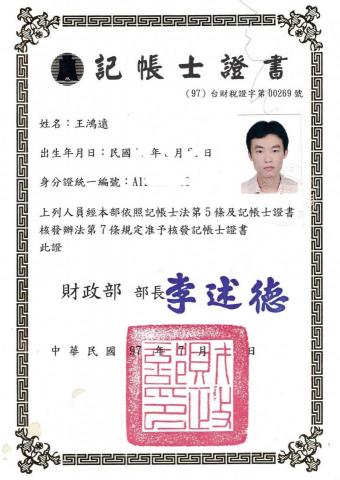 記帳士證書
(97) 台財稅證字第00269號
姓名：王鴻遠
出生年月日：民國 年 月 日
身分證統一編號：A1
上列人員經本部依照記帳士法第5條及記帳士證書
核發辦法第7條規定准予核發記帳士證書
此證
財政部 部長 李述德
中華民國 97 年 7 月 日
財政部印